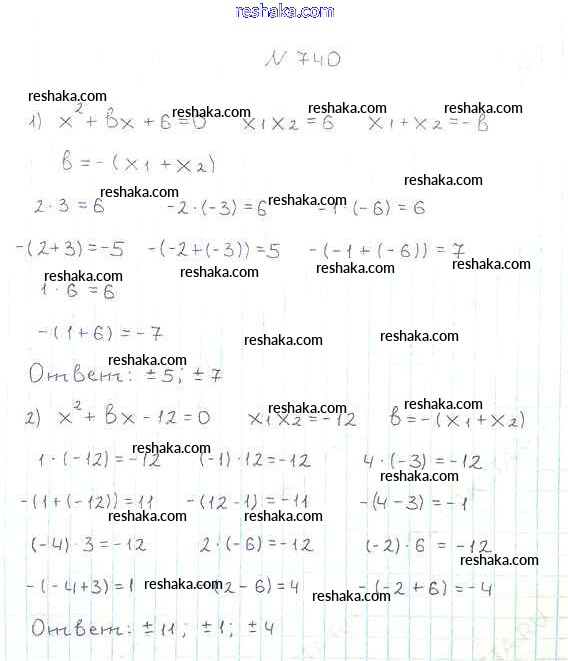 reshaka.com
N 740
reshaka.com
1) x² + bx + 6 = 0 x₁x₂ = 6 x₁ + x₂ = -b
reshaka.com reshaka.com reshaka.com
b = -(x₁ + x₂)
reshaka.com
2·3 = 6 -2·(-3) = 6 -1·(-6) = 6
reshaka.com reshaka.com
-(2+3) = -5 -(-2+(-3)) = 5 -(-1+(-6)) = 7
reshaka.com reshaka.com reshaka.com
1·6 = 6
-(1+6) = -7
reshaka.com reshaka.com
reshaka.com
Ответ: ±5; ±7
2) x² + bx - 12 = 0 x₁x₂ = -12 b = -(x₁ + x₂)
reshaka.com reshaka.com
reshaka.com
1·(-12) = -12 (-1)·12 = -12 4·(-3) = -12
reshaka.com
-(1+(-12)) = 11 -(12-1) = -11 -(4-3) = -1
reshaka.com reshaka.com reshaka.com
(-4)·3 = -12 2·(-6) = -12 (-2)·6 = -12
reshaka.com
-(-4+3) = 1 (2-6) = 4 -(-2+6) = -4
reshaka.com reshaka.com
Ответ: ±11; ±1; ±4
reshaka.com